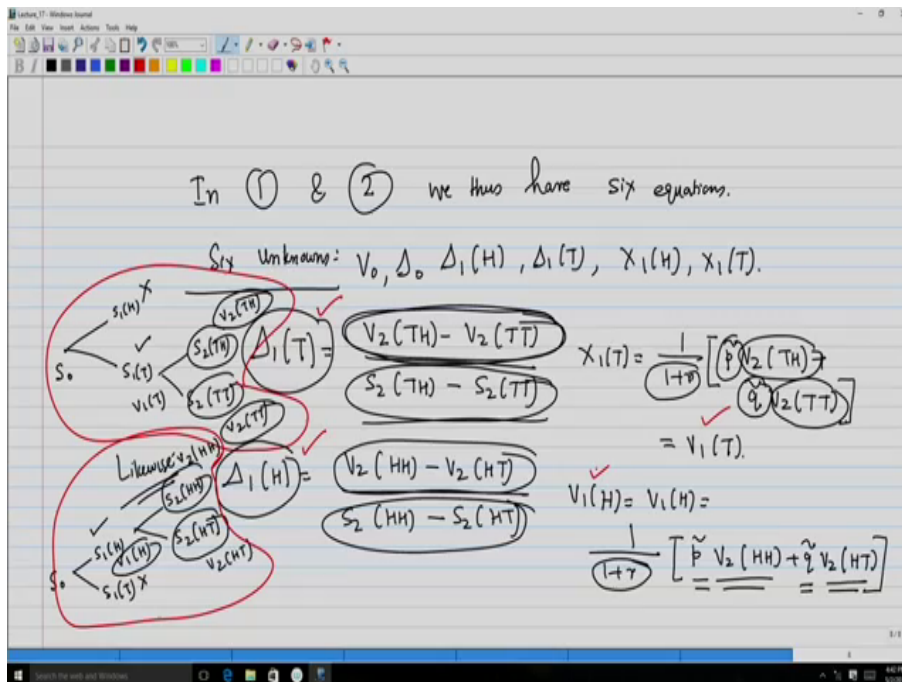 Lecture_17 - Windows Journal
File Edit View Insert Actions Tools Help
B I
In ① & ② we thus have six equations.
Six Unknowns: V₀, Δ₀ Δ₁(H), Δ₁(T), X₁(H), X₁(T).
S₀ S₁(H) X
S₁(T) ✓
V₁(T)
V₂(TH)
S₂(TH)
S₂(TT)
V₂(TT)
Δ₁(T) = V₂(TH) - V₂(TT)
S₂(TH) - S₂(TT)
X₁(T) = 1/(1+r) [p̃ V₂(TH) +
q̃ V₂(TT)]
= V₁(T).
Likewise V₂(HH)
S₂(HH)
S₁(H) ✓
V₁(H)
S₂(HT)
V₂(HT)
S₀ S₁(T) X
Δ₁(H) = V₂(HH) - V₂(HT)
S₂(HH) - S₂(HT)
V₁(H) = V₁(H) =
1/(1+r) [p̃ V₂(HH) + q̃ V₂(HT)]
Search the web and Windows